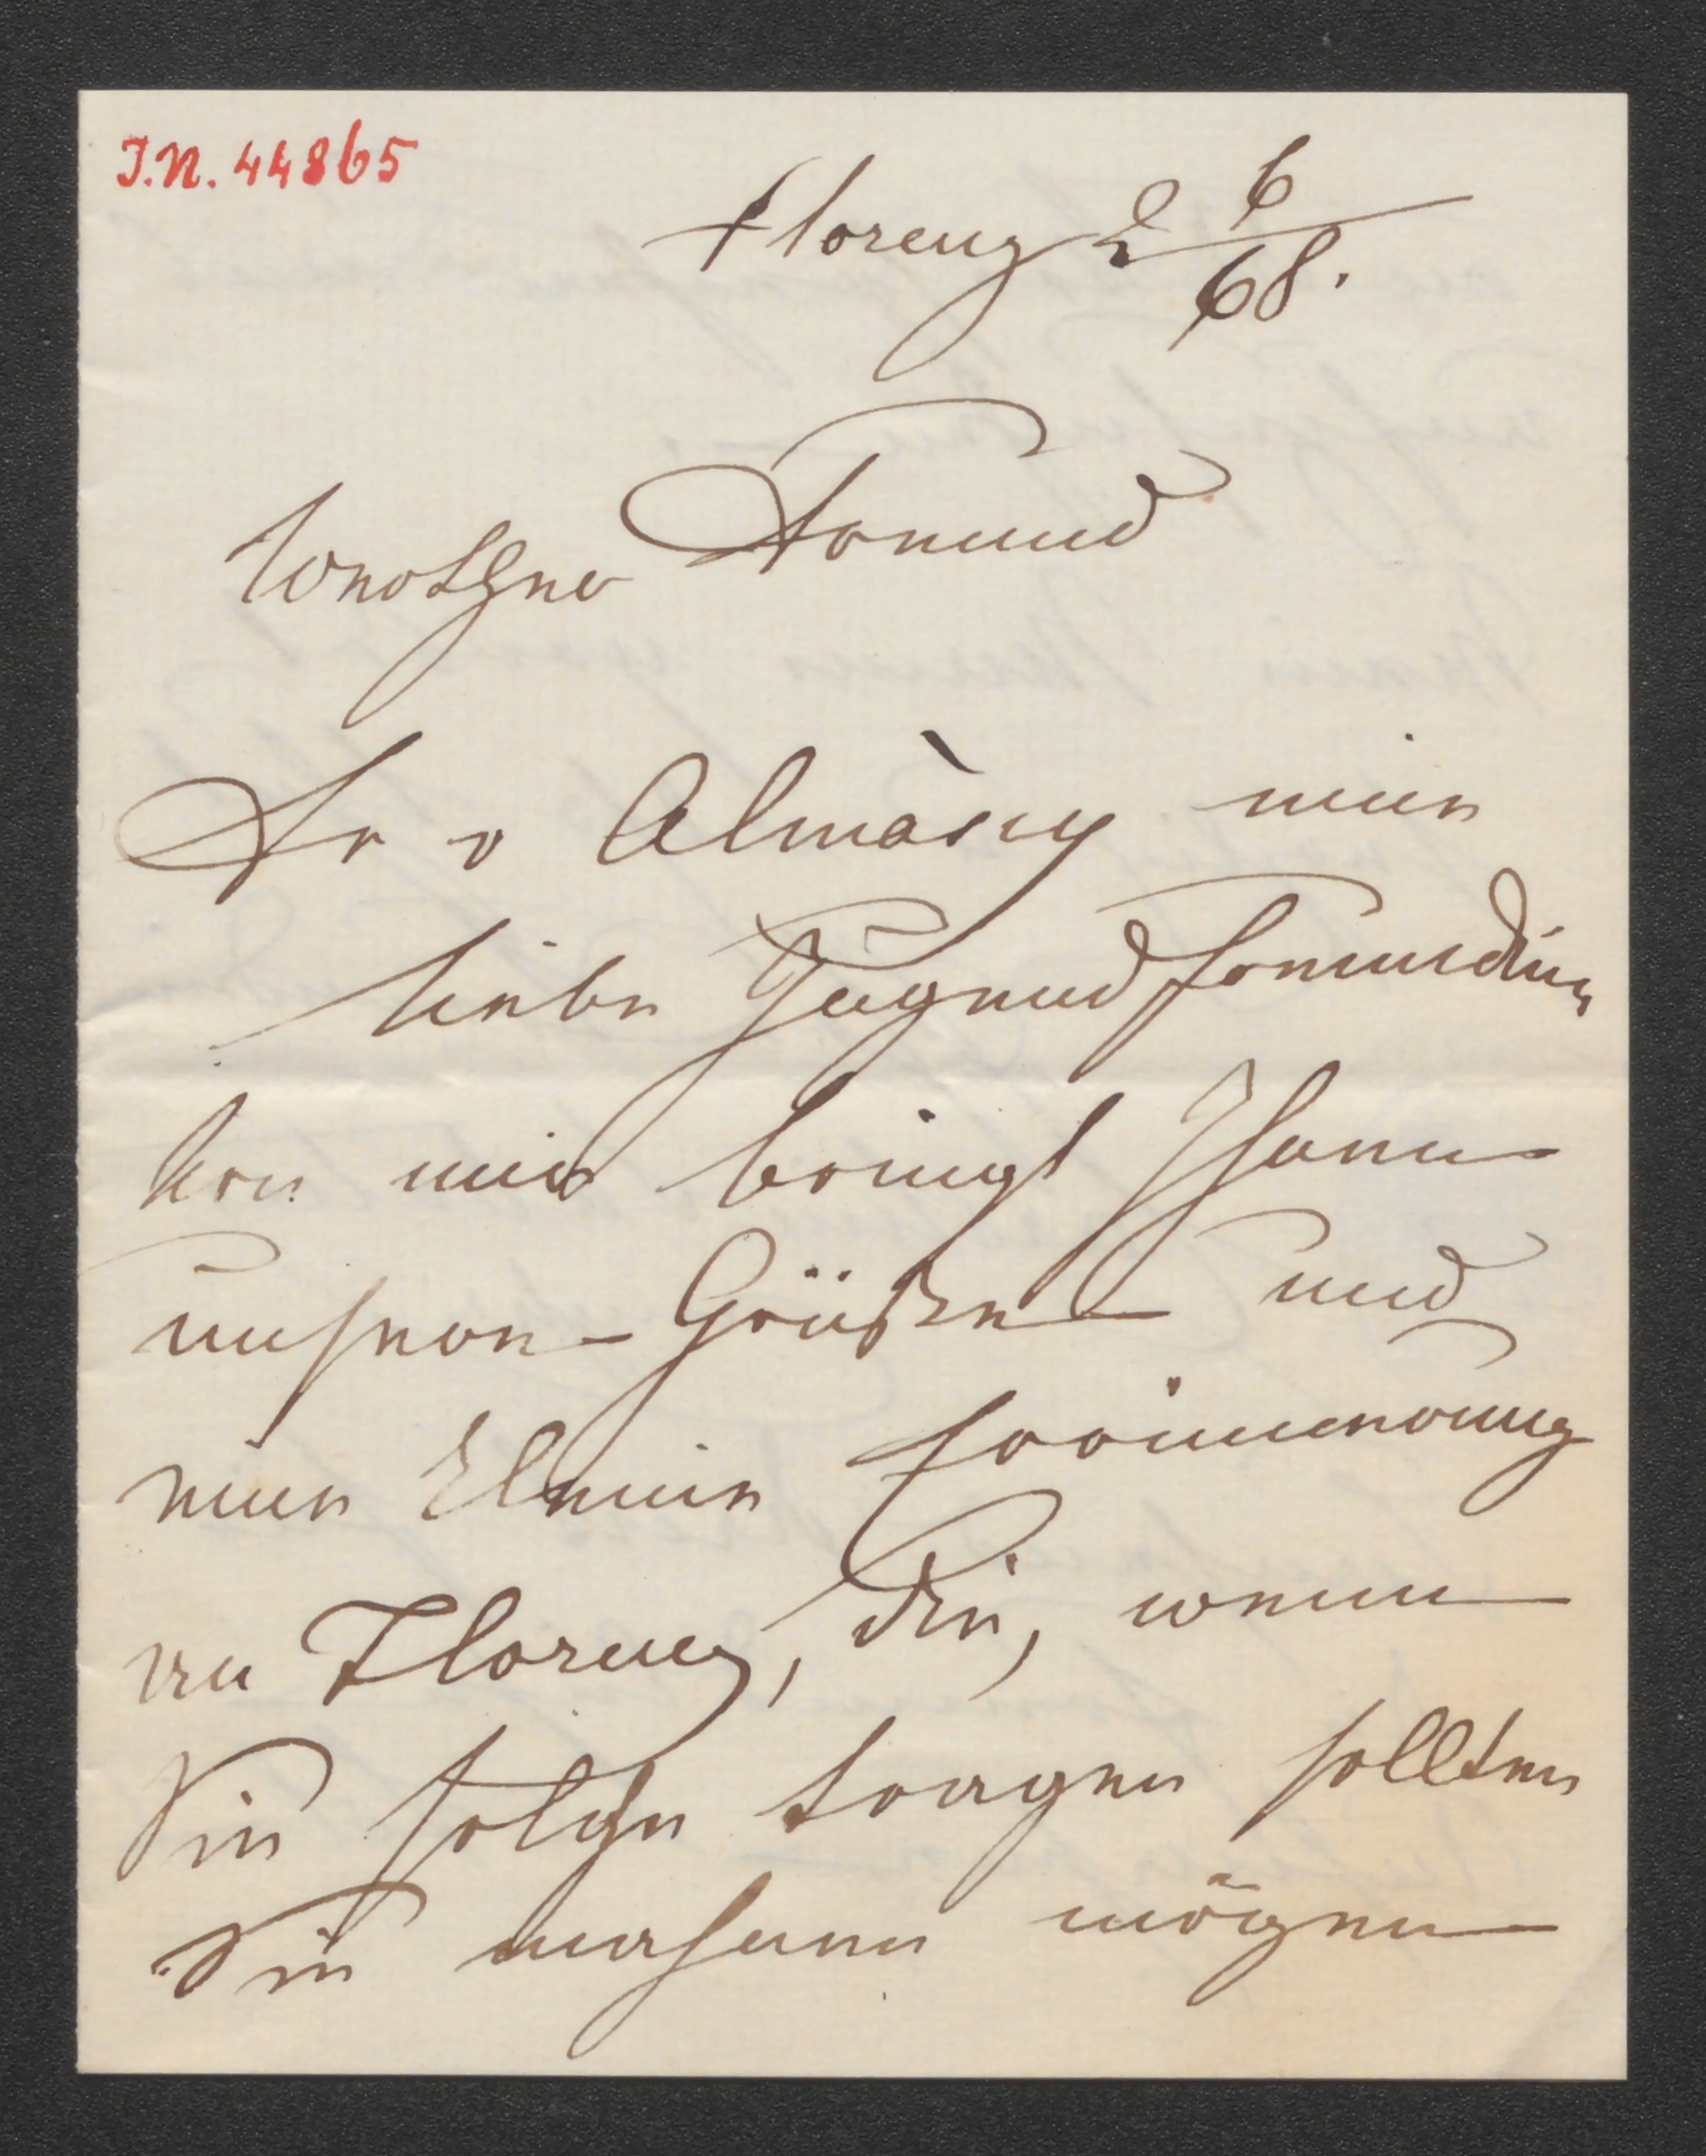 I.N. 44865
Florenz 2 6/68.
Verehrter Freund
Fr v Almàsy eine
liebe Jugendfreundin
von mir bringt Ihnen
unsere Grüße und
eine kleine Erinnerung
an Florenz, die, wenn
Sie solche tragen sollten
Sie mögen